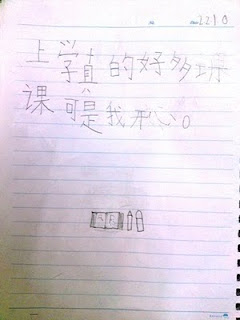 2210
上学真的好多功
课可是我开心。